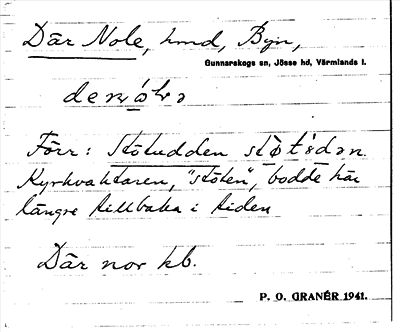 Där Nole, hmd, Byn,
Gunnarskogs sn, Jösse hd, Värmlands l.
Förr: Stötudden
Kyrkvaktaren, "stöten", bodde här
längre tillbaka i tiden
Där nor kb.
P. O. GRANÉR 1941.